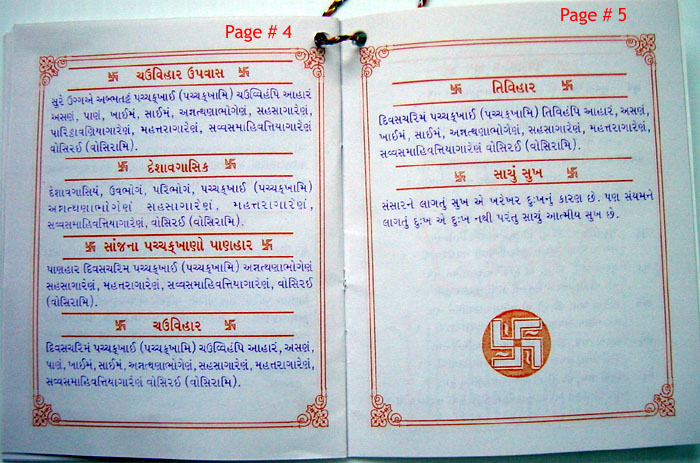 Page # 4
ચઉવિહાર ઉપવાસ
સુરે ઉગ્ગએ અબ્ભતટ્ઠં પચ્ચક્ખાઈ (પચ્ચક્ખામિ) ચઉવ્વિહંપિ આહારં
અસણં, પાણં, ખાઈમં, સાઈમં, અન્નત્થણાભોગેણં, સહસાગારેણં,
પારિઠ્ઠાવણિયાગારેણં, મહત્તરાગારેણં, સવ્વસમાહિવત્તિયાગારેણં
વોસિરઈ (વોસિરામિ).
દેશાવગાસિક
દેશાવગાસિયં, ઉવભોગં, પરિભોગં, પચ્ચક્ખાઈ (પચ્ચક્ખામિ)
અન્નત્થણાભોગેણં સહસાગારેણં, મહત્તરાગારેણં,
સવ્વસમાહિવત્તિયાગારેણં, વોસિરઈ (વોસિરામિ).
સાંજના પચ્ચક્ખાણો પાણહાર
પાણહાર દિવસચરિમં પચ્ચક્ખાઈ (પચ્ચક્ખામિ) અન્નત્થણાભોગેણં
સહસાગારેણં, મહત્તરાગારેણં, સવ્વસમાહિવત્તિયાગારેણં, વોસિરઈ
(વોસિરામિ).
ચઉવિહાર
દિવસચરિમં પચ્ચક્ખાઈ (પચ્ચક્ખામિ) ચઉવ્વિહંપિ આહારં, અસણં,
પાણં, ખાઈમં, સાઈમં, અન્નત્થણાભોગેણં, સહસાગારેણં, મહત્તરાગારેણં,
સવ્વસમાહિવત્તિયાગારેણં વોસિરઈ (વોસિરામિ).
Page # 5
તિવિહાર
દિવસચરિમં પચ્ચક્ખાઈ (પચ્ચક્ખામિ) તિવિહંપિ આહારં, અસણં,
ખાઈમં, સાઈમં, અન્નત્થણાભોગેણં, સહસાગારેણં, મહત્તરાગારેણં,
સવ્વસમાહિવત્તિયાગારેણં વોસિરઈ (વોસિરામિ).
સાચું સુખ
સંસારને લાગતું સુખ એ ખરેખર દુઃખનું કારણ છે. પણ સંયમને
લાગતું દુઃખ એ દુઃખ નથી પરંતુ સાચું આત્મીય સુખ છે.